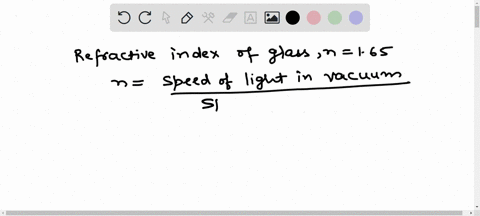 Refractive index of glass, n=1.65
n= Speed of light in vacuum
Sp